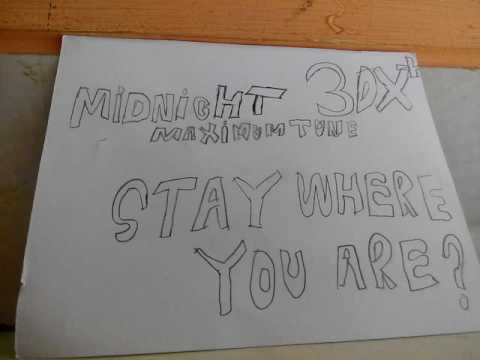 MiDNiGHT 3DX+
MAXiMUM TUNE
STAY WHERE
YOU ARE?